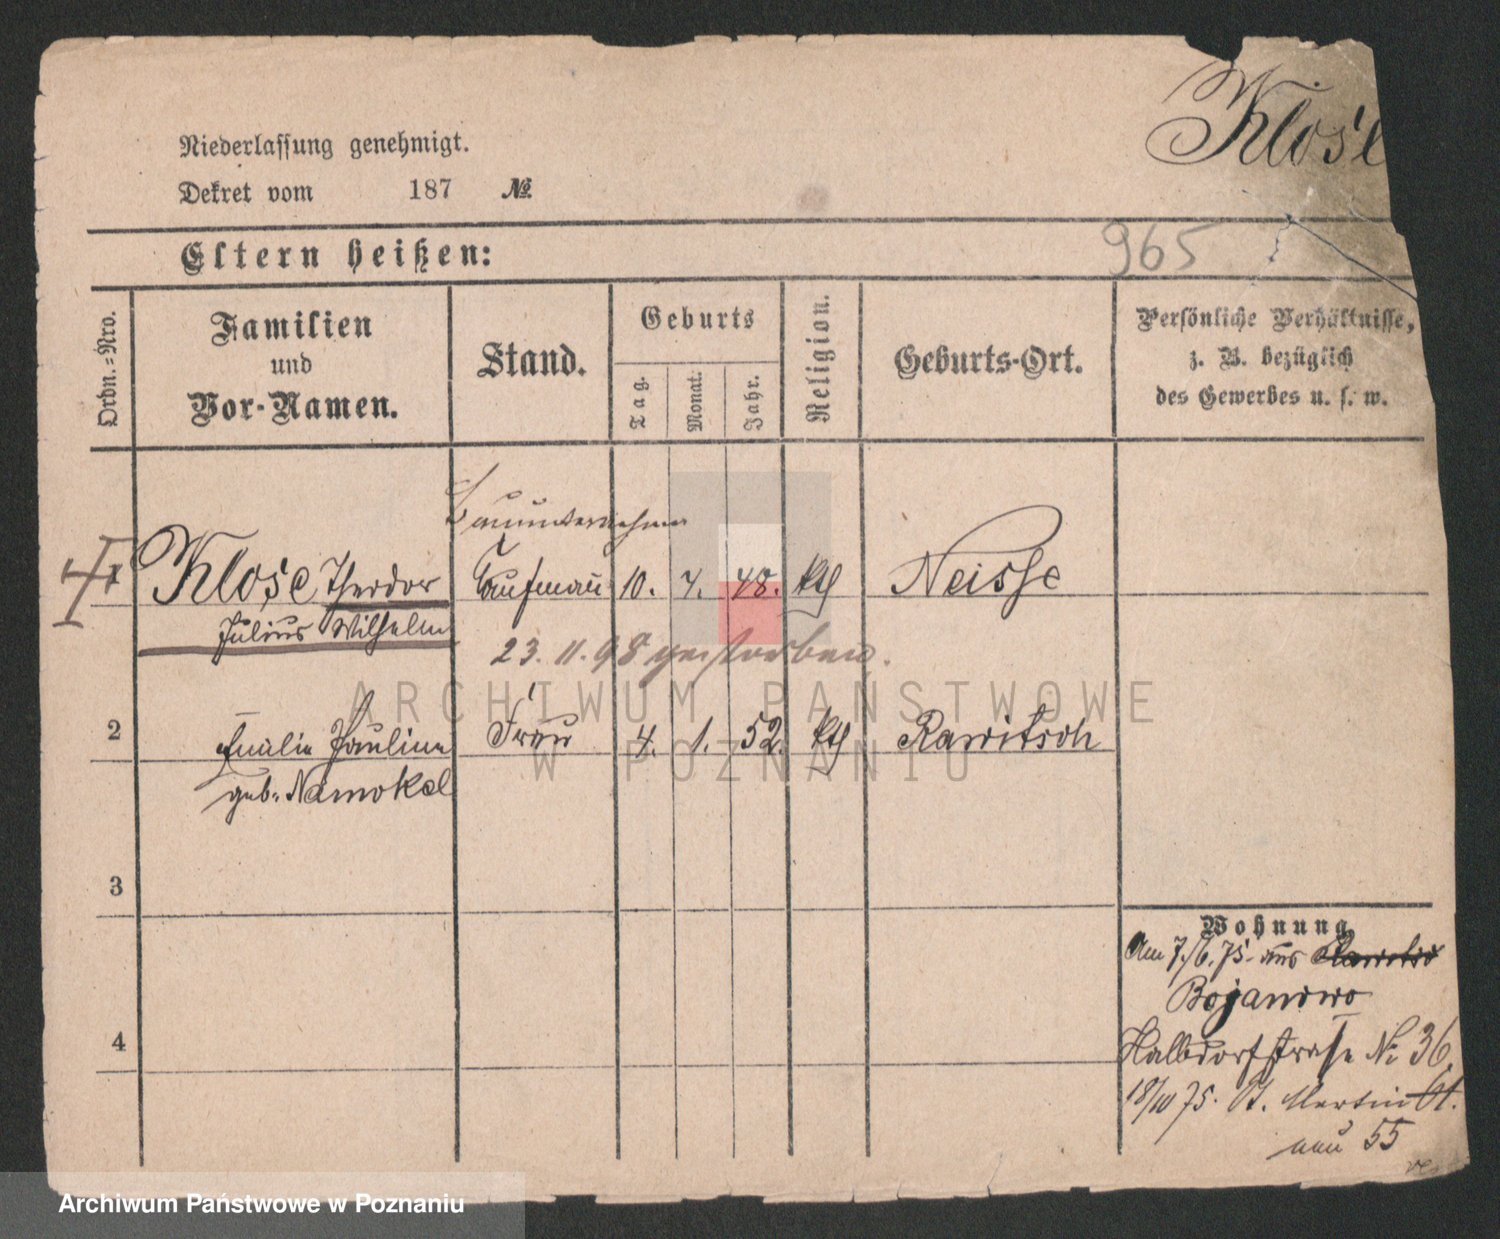 Klose
Niederlassung genehmigt.
Dekret vom 187 №
965
Eltern heißen:
Ordn.-Nro.
Familien
und
Vor-Namen.
Stand.
Geburts
Tag.
Monat.
Jahr.
Religion.
Geburts-Ort.
Persönliche Verhältnisse,
z. B. bezüglich
des Gewerbes u. s. w.
Bauunternehmer
Klose Theodor Kaufmann 10. 4. 48. kth Neisse
Julius Wilhelm
23. 11. 98 gestorben.
2 Emilie Pauline Frau 4. 1. 52. kth Rawitsch
geb. Namokel
3
4
Wohnung.
Am 7./6. 75. aus
Bojanowo
Halbdorfstraße № 36.
18/10 75. St. Martin
neu 55
ARCHIWUM PAŃSTWOWE
W POZNANIU
Archiwum Państwowe w Poznaniu